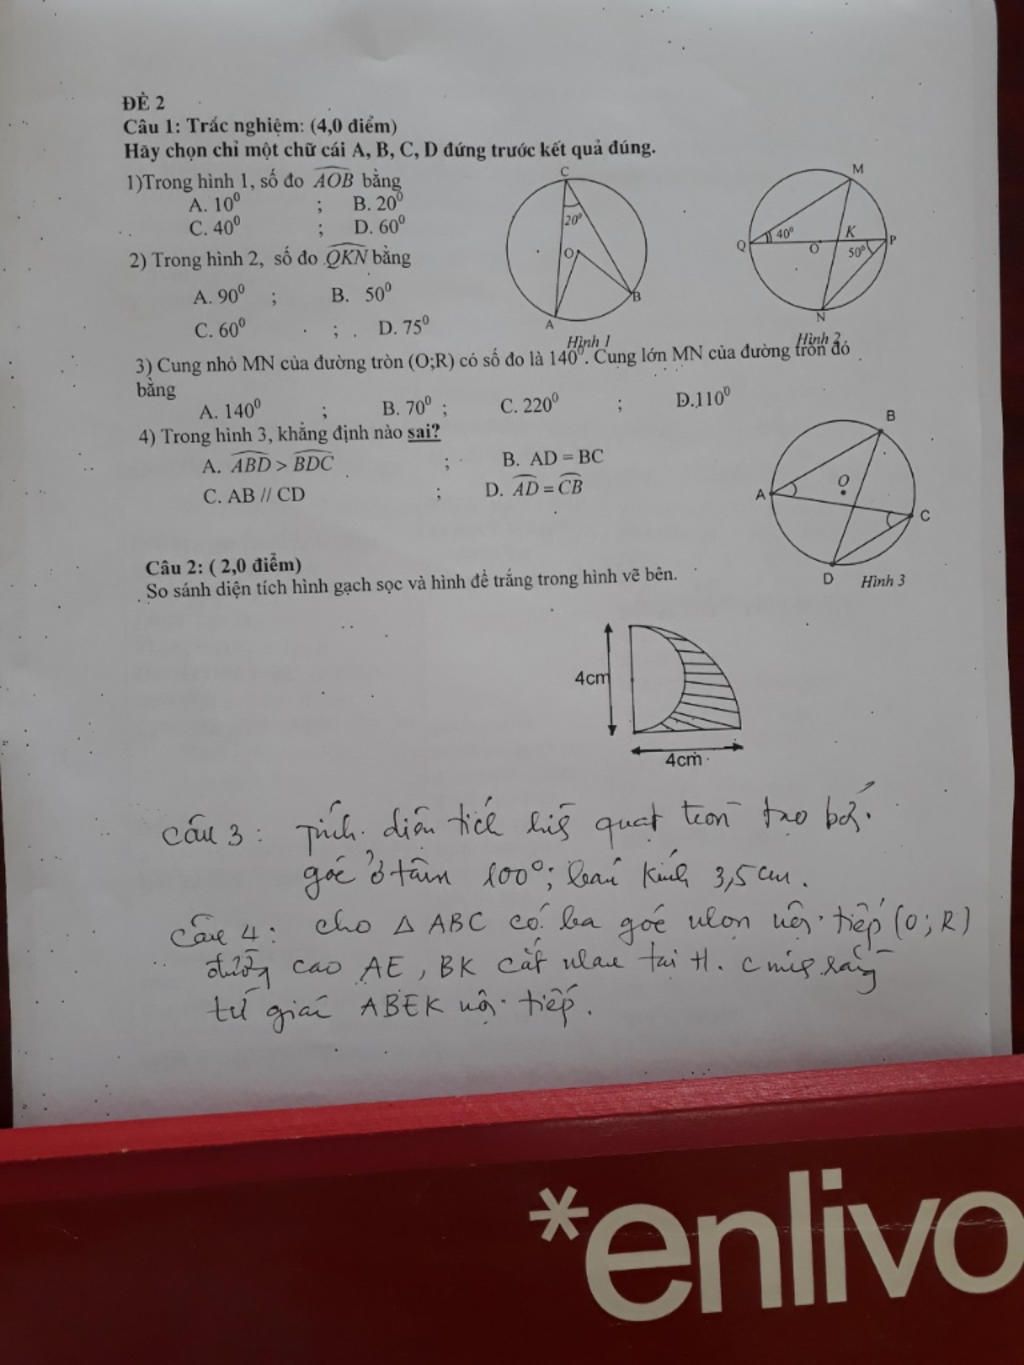 ĐỀ 2
Câu 1: Trắc nghiệm: (4,0 điểm)
Hãy chọn chỉ một chữ cái A, B, C, D đứng trước kết quả đúng.
1)Trong hình 1, số đo AOB bằng
A. 10⁰ ; B. 20⁰
C. 40⁰ ; D. 60⁰
2) Trong hình 2, số đo QKN bằng
A. 90⁰ ; B. 50⁰
C. 60⁰ ; D. 75⁰
C
20⁰
O
B
A
Hình 1
M
Q
40⁰
K
O
50⁰
P
N
Hình 2
3) Cung nhỏ MN của đường tròn (O;R) có số đo là 140⁰. Cung lớn MN của đường tròn đó
bằng
A. 140⁰ ; B. 70⁰ ; C. 220⁰ ; D.110⁰
4) Trong hình 3, khẳng định nào sai?
A. ABD > BDC ; B. AD = BC
C. AB // CD ; D. AD = CB
B
O
A
C
D
Hình 3
Câu 2: ( 2,0 điểm)
So sánh diện tích hình gạch sọc và hình để trắng trong hình vẽ bên.
4cm
4cm
Câu 3: Tính diện tích hình quạt tròn tạo bởi
góc ở tâm 100⁰; bán kính 3,5 cm.
Câu 4: cho △ ABC có ba góc nhọn nội tiếp (O; R)
đường cao AE, BK cắt nhau tại H. Cminh rằng
tứ giác ABEK nội tiếp.
*enlivo